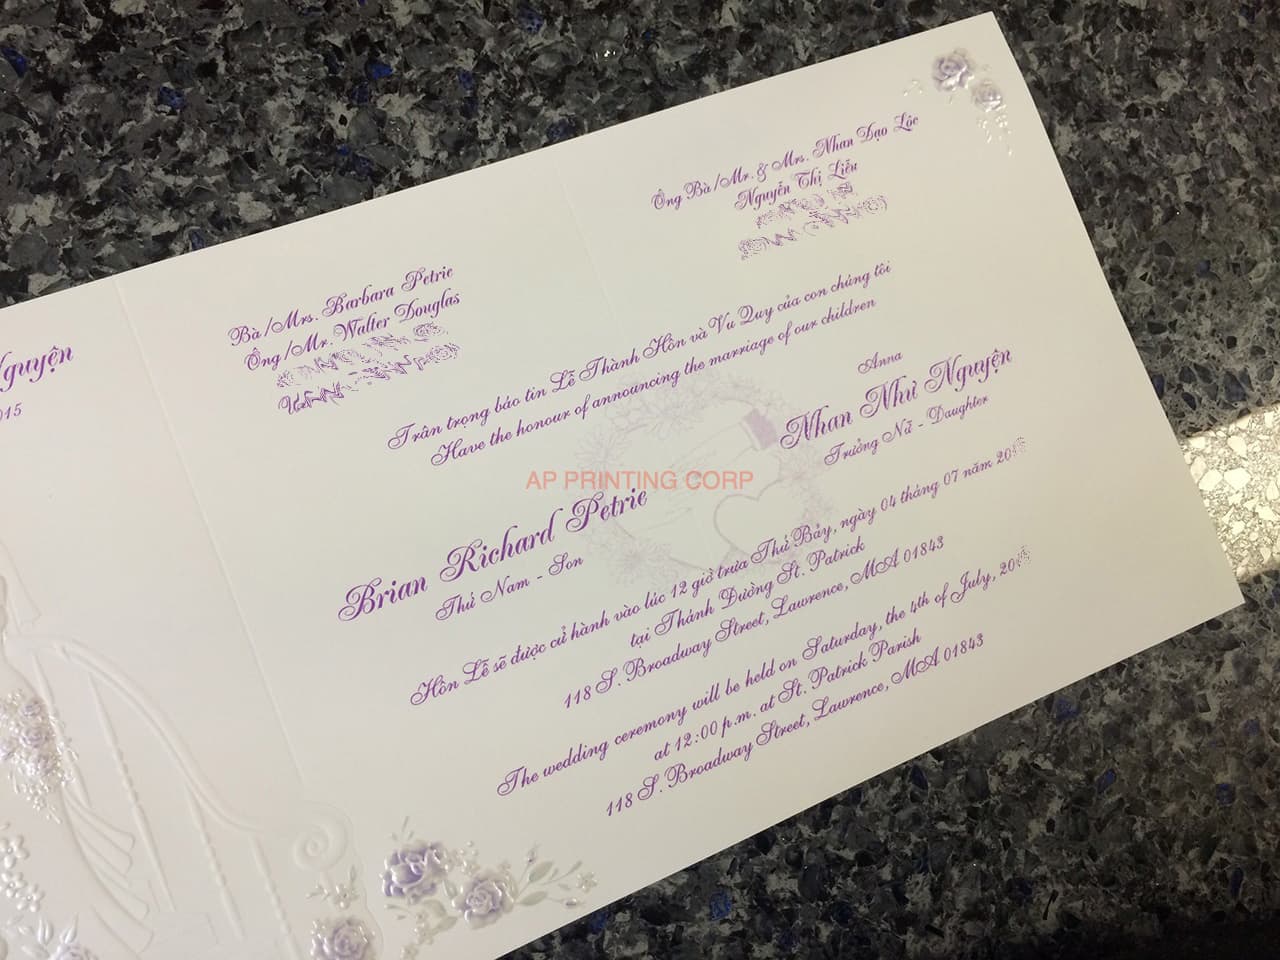 Nguyện
2015
Bà/Mrs. Barbara Petrie
Ông/Mr. Walter Douglas
Ông Bà/Mr. & Mrs. Nhan Dạo Lộc
Nguyễn Thị Liễu
Trân trọng báo tin Lễ Thành Hôn và Vu Quy của con chúng tôi
Have the honour of announcing the marriage of our children
Brian Richard Petrie
Thứ Nam - Son
Anna
Nhan Như Nguyện
Trưởng Nữ - Daughter
AP PRINTING CORP
Hôn Lễ sẽ được cử hành vào lúc 12 giờ trưa Thứ Bảy, ngày 04 tháng 07 năm
tại Thánh Đường St. Patrick
118 S. Broadway Street, Lawrence, MA 01843
The wedding ceremony will be held on Saturday, the 4th of July,
at 12:00 p.m. at St. Patrick Parish
118 S. Broadway Street, Lawrence, MA 01843